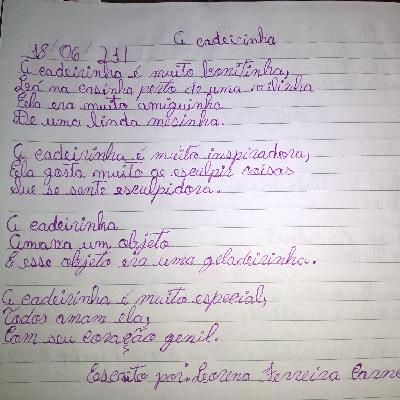 A cadeirinha
18/06/211
A cadeirinha é muito bonitinha,
Lá na casinha perto de uma
Ela era muito amiguinha
De uma linda mesinha.
A cadeirinha é muito inspiradora,
Ela gosta muito de esculpir coisas
Que se sente esculpidora.
A cadeirinha
Amava um objeto
E esse objeto era uma geladeirinha.
A cadeirinha é muito especial,
Todos amam ela,
Com seu coração genil.
Escrito por: Lorena Ferreira Carne